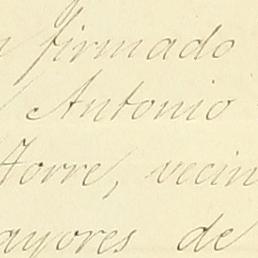 firmado
Antonio
Torre, vecin
ayores de